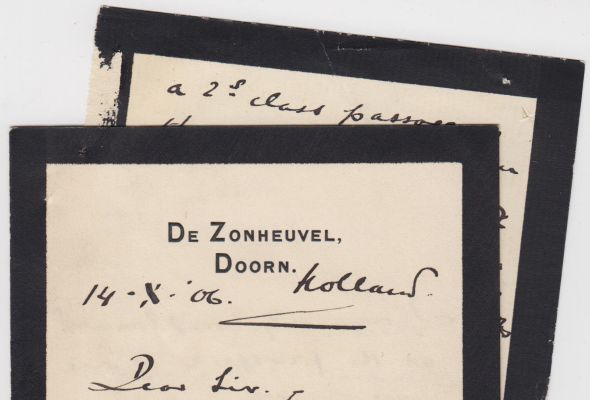 a 2d class passage
DE ZONHEUVEL,
DOORN.
14-X-'06. Holland.
Dear Sir.